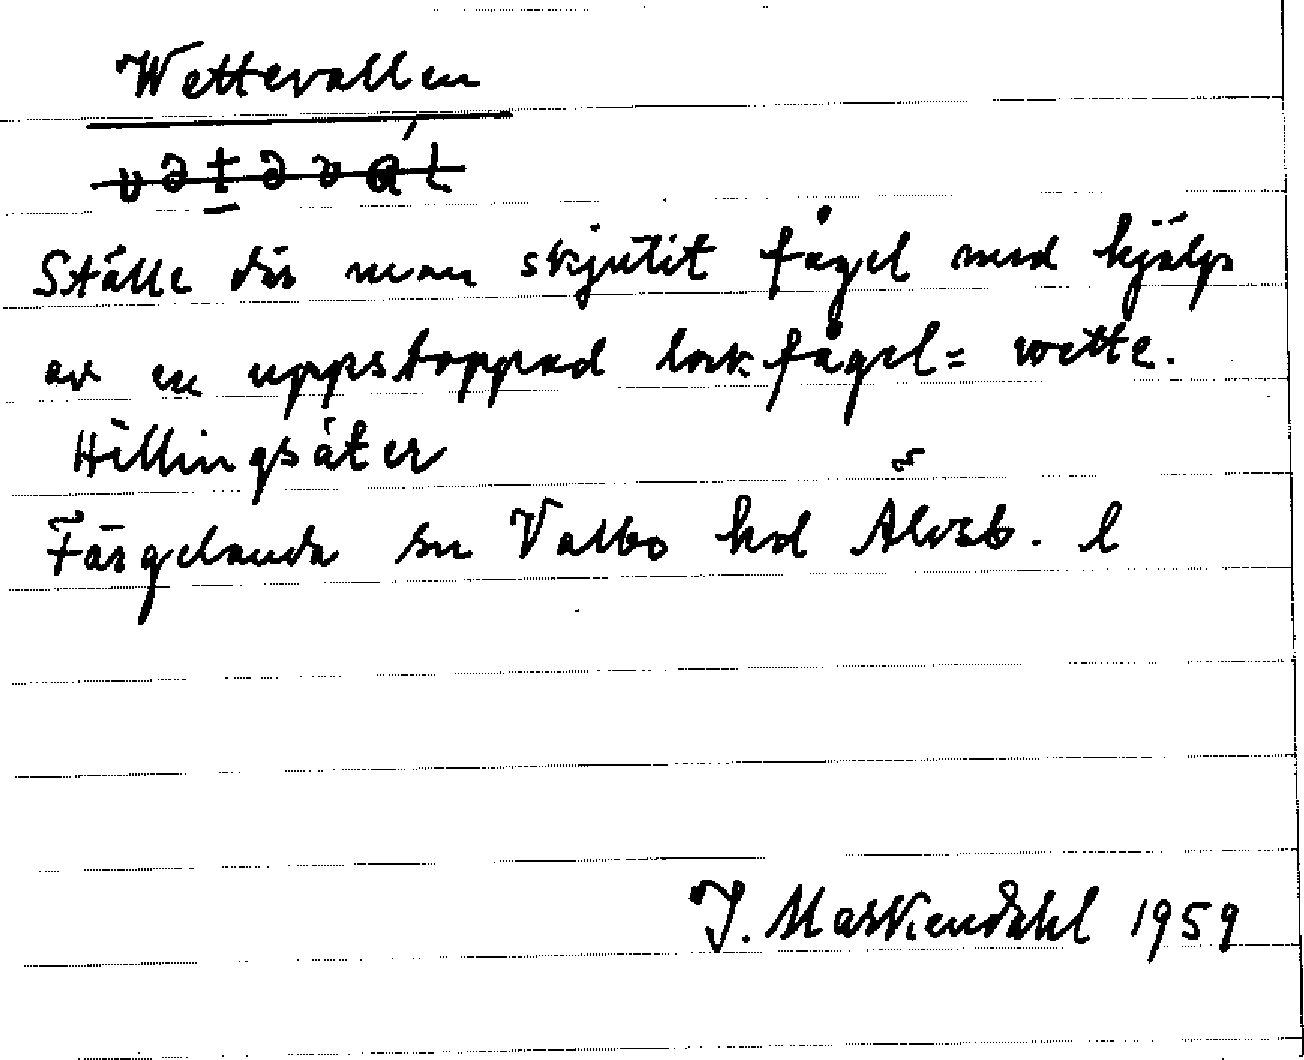 Wettevallen
vətəvál
Ställe där man skjutit fågel med hjälp
av en uppstoppad lockfågel = vette.
Hillingsäter
Färgelanda sn Valbo hd Älvsb. l
J. Markendahl 1959